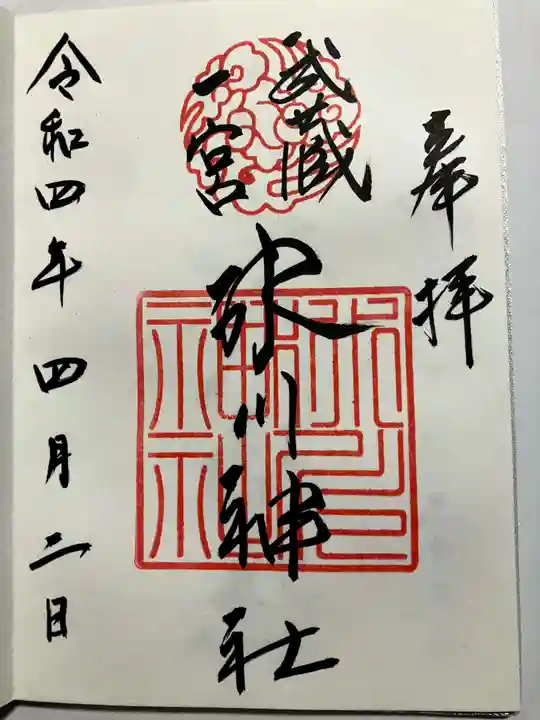 奉拝
武蔵
一宮
氷川神社
令和四年四月二日
氷川
神社